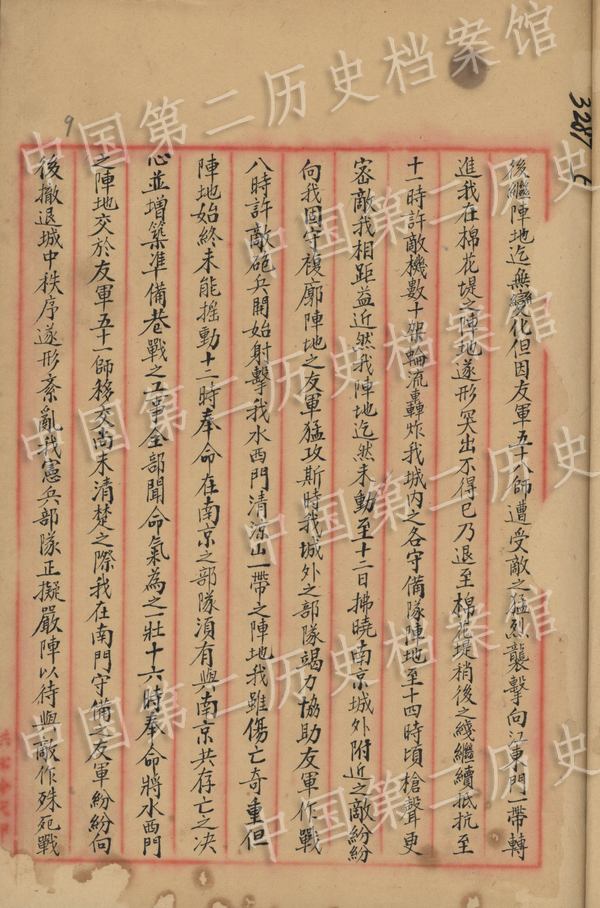 後繼陣地迄無變化但因友軍五十八師遭受敵之猛烈襲擊向江東門一帶轉
進我在棉花堤之陣地遂形突出不得已乃退至棉花堤稍後之綫繼續抵抗至
十一時許敵機數十架輪流轟炸我城內之各守備隊陣地至十四時頃槍聲更
密敵我相距益近然我陣地迄然未動至十二日拂曉南京城外附近之敵紛紛
向我固守複廓陣地之友軍猛攻斯時我城外之部隊竭力協助友軍作戰
八時許敵砲兵開始射擊我水西門清涼山一帶之陣地我雖傷亡奇重但
陣地始終未能搖動十二時奉命在南京之部隊須有與南京共存亡之決
心並增築準備巷戰之工事全部聞命氣為之一壯十六時奉命將水西門
之陣地交於友軍五十一師移交尚未清楚之際我在南門守備之友軍紛紛向
後撤退城中秩序遂形紊亂我憲兵部隊正擬嚴陣以待與敵作殊死戰
9
3287
中国第二历史档案馆
中国第二历史档案馆
中国第二历史档案馆
中国第二历史档案馆